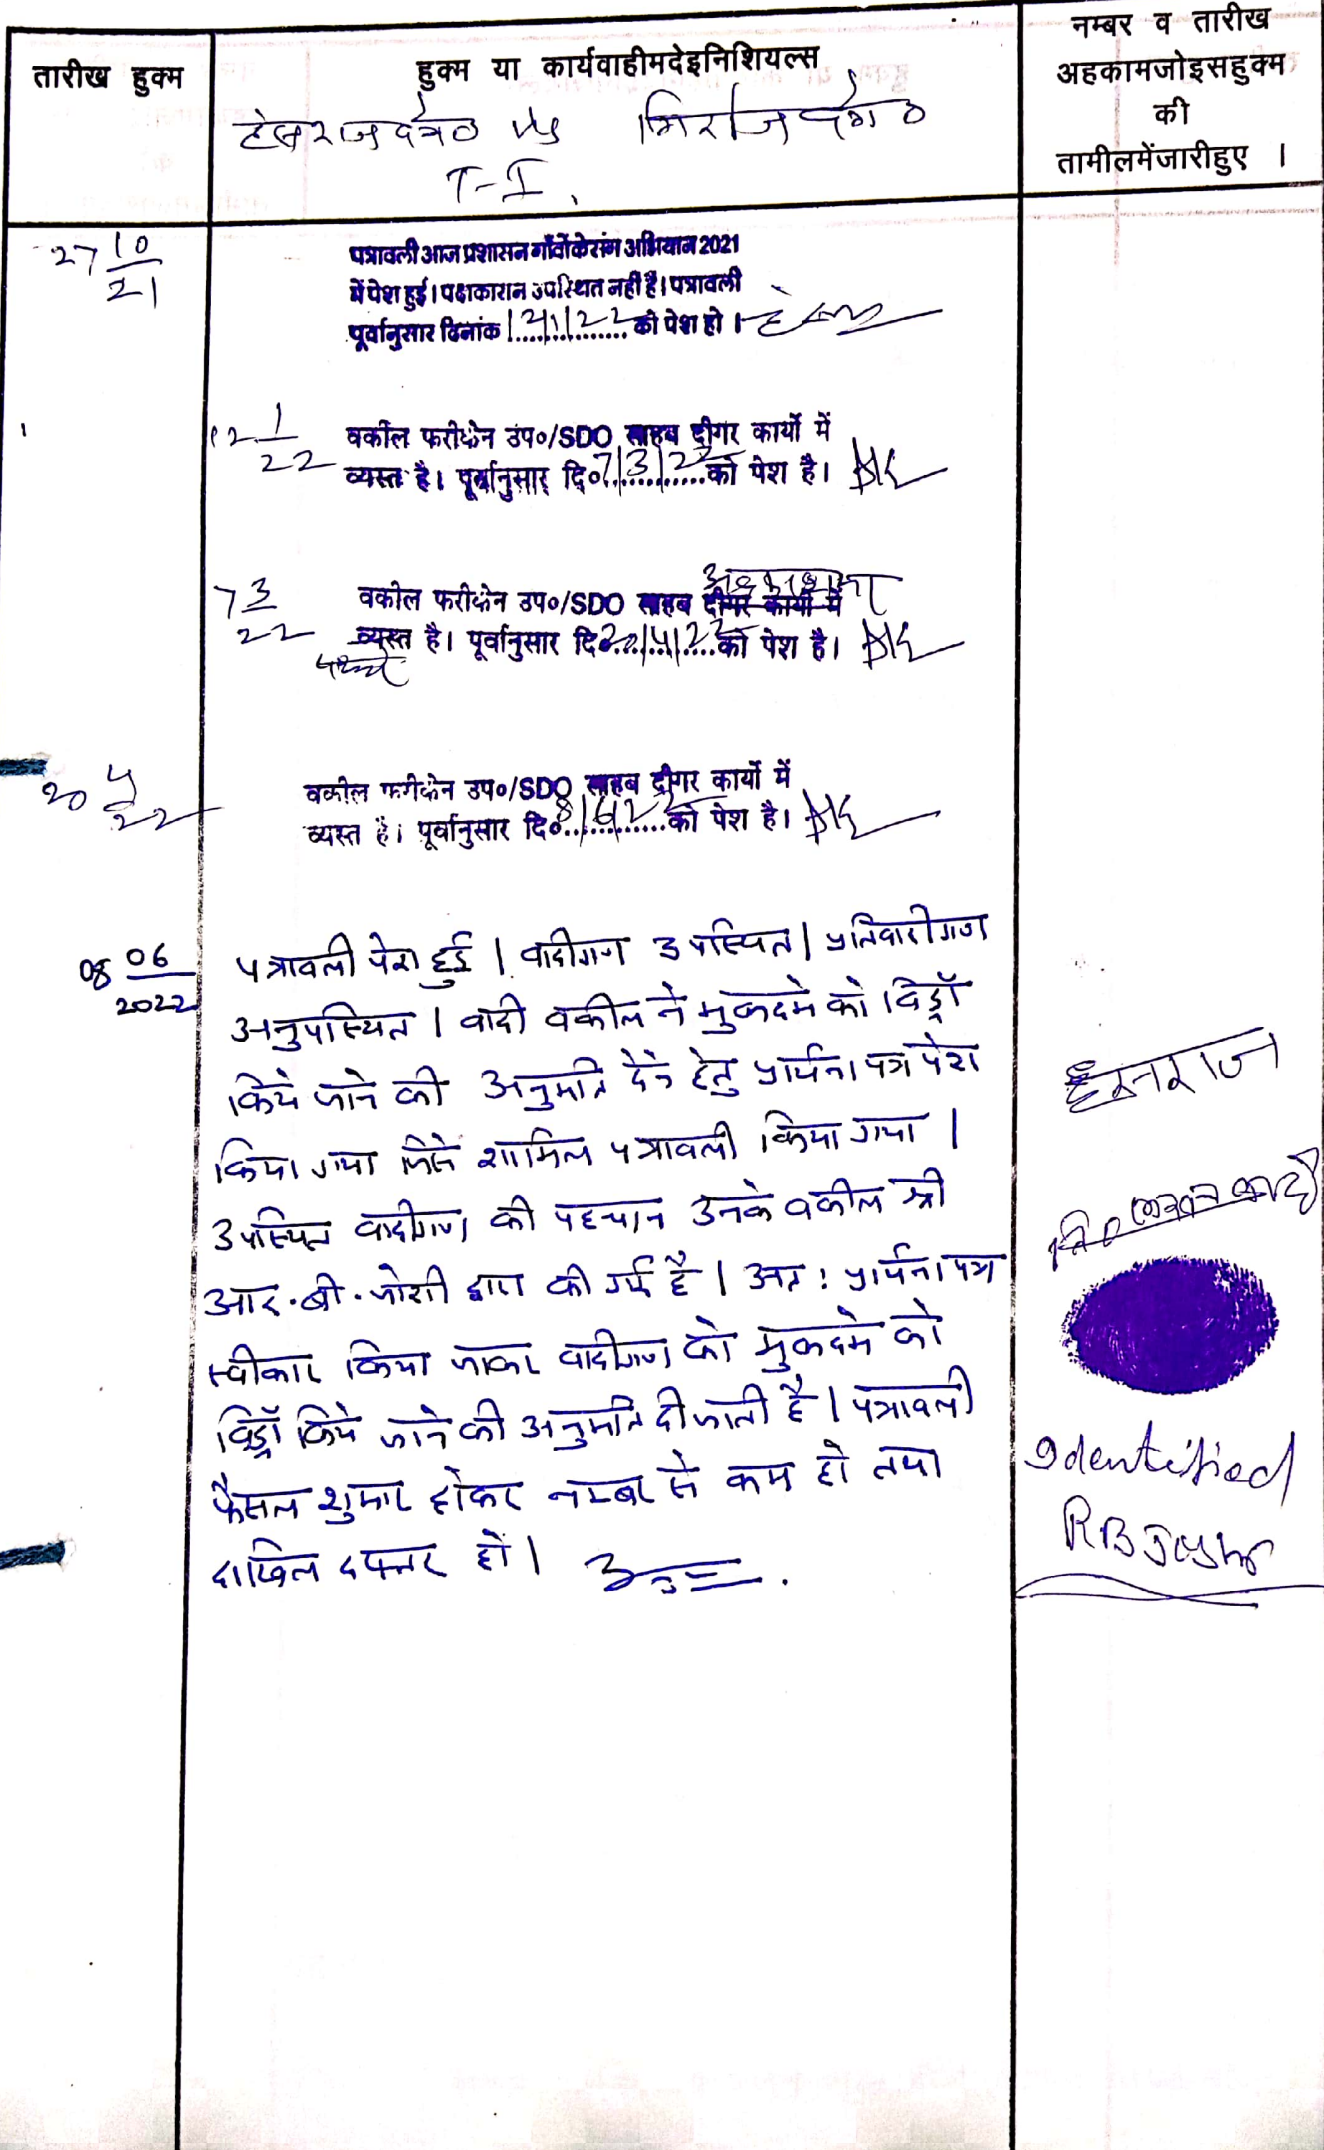 तारीख हुक्म
हुक्म या कार्यवाहीमदेइनिशियल्स
नम्बर व तारीख
अहकामजोइसहुक्म
की
तामीलमेंजारीहुए ।
T-I
27 10/21
पत्रावली आज प्रशासन गाँवों के संग अभियान 2021
में पेश हुई। पक्षकारान उपस्थित नहीं है। पत्रावली
पूर्वानुसार दिनांक 12/1/22 को पेश हो ।
12 1/22
वकील फरीकेन उप०/SDO साहब दीगर कार्यो में
व्यस्त है। पूर्वानुसार दि० 7/3/22 को पेश है।
7 3/22
वकील फरीकेन उप०/SDO साहब दीगर कार्यो में
व्यस्त है। पूर्वानुसार दि० 20/4/22 को पेश है।
20 4/22
वकील फरीकेन उप०/SDO साहब दीगर कार्यो में
व्यस्त है। पूर्वानुसार दि० 8/6/22 को पेश है।
08 06/2022
पत्रावली पेश हुई । वादीगण उपस्थित । प्रतिवादीगण
अनुपस्थित । वादी वकील ने मुकदमे को विड्रॉ
किये जाने की अनुमति देने हेतु प्रार्थना पत्र पेश
किया गया जिसे शामिल पत्रावली किया गया ।
उपस्थित वादीगण की पहचान उनके वकील श्री
आर. बी. जोशी द्वारा की गई है । अत: प्रार्थना पत्र
स्वीकार किया जाकर वादीगण को मुकदमे को
विड्रॉ किये जाने की अनुमति दी जाती है । पत्रावली
फैसल शुमार होकर नम्बर से कम हो तथा
दाखिल दफ्तर हो ।
हंसराज
Identified
RB Joshi